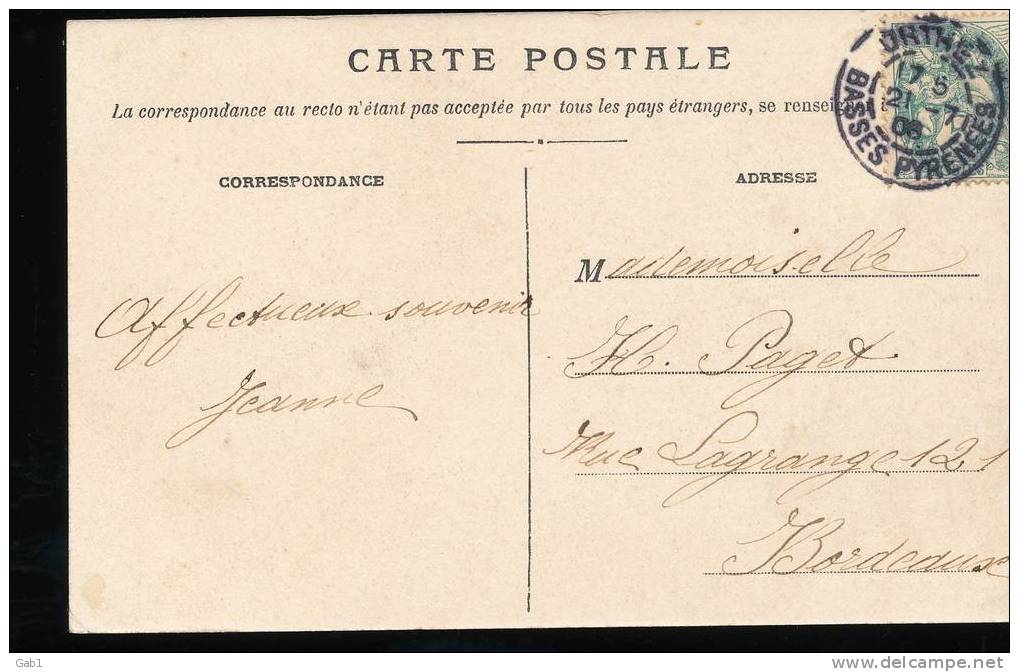 CARTE POSTALE
La correspondance au recto n'étant pas acceptée par tous les pays étrangers, se renseigner
CORRESPONDANCE
ADRESSE
Affectueux souvenir
Jeanne
Mademoiselle
H. Paget
Rue Lagrange 121
Bordeaux
ORTHEZ
7 5
21 -7
06
BASSES PYRENEES
Gab1
www.delcampe.net